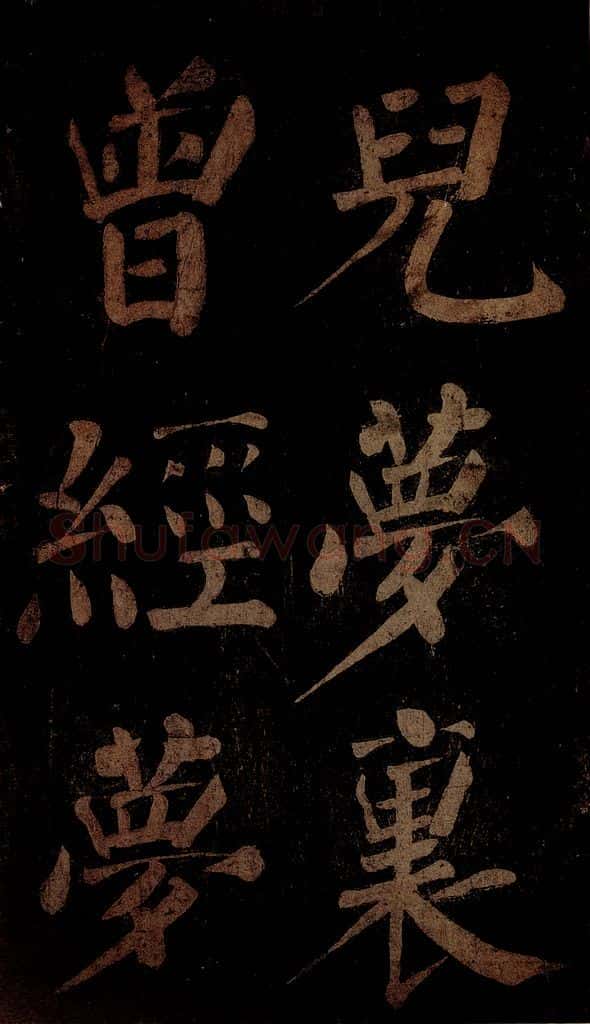 兒夢裏
曾經夢
Shufawang.CN